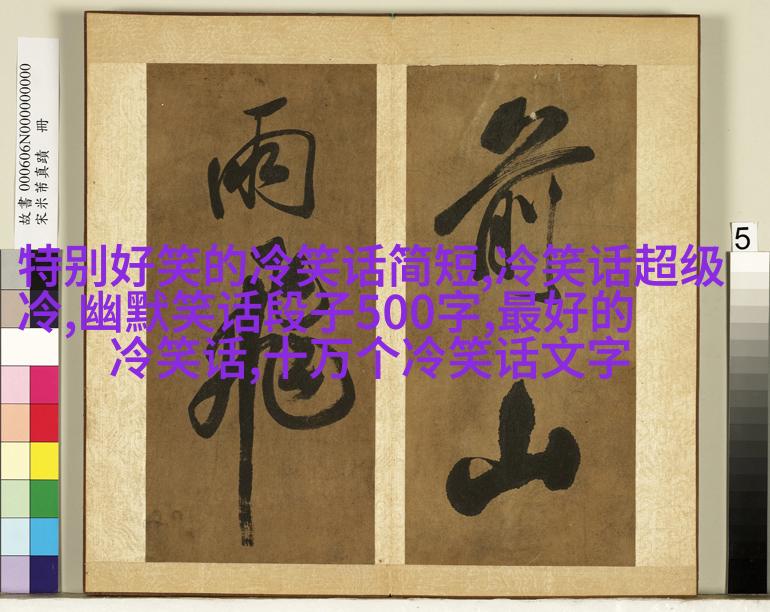 特别好笑的冷笑话简短,冷笑话超级
冷,幽默笑话段子500字,最好的
冷笑话,十万个冷笑话文字
前山
雨飛
故書 000606N000000000
宋米芾真蹟 冊
5